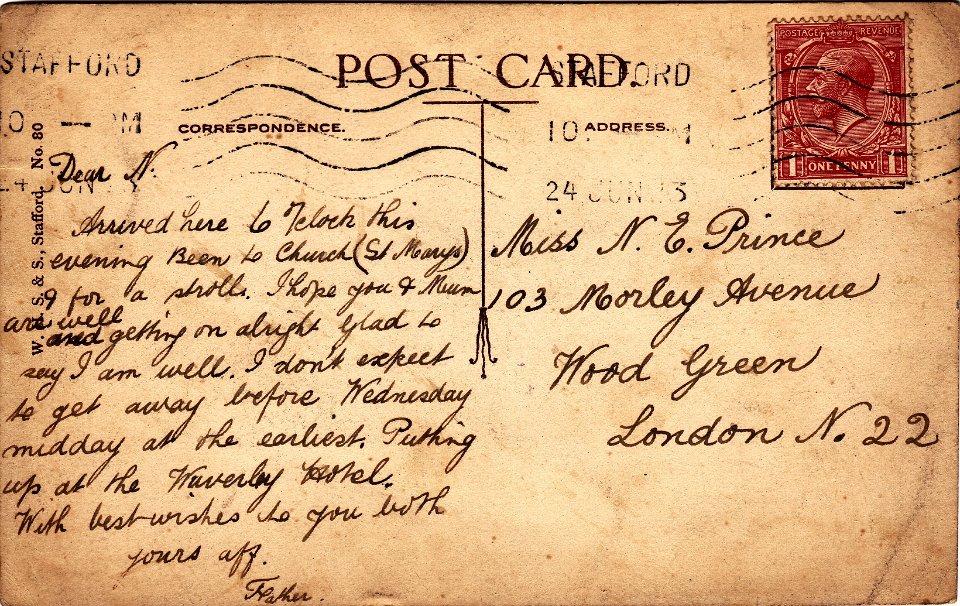 POST CARD.
STAFFORD
STAFFORD
POSTAGE REVENUE
1D ONE PENNY 1D
CORRESPONDENCE.
ADDRESS.
24 JUN
24 JUN
W. H. S. & S., Stafford. No. 80
Dear N.
Arrived here 6 o'clock this
evening Been to Church (St Marys)
& for a stroll. I hope you & Mum
are well
and getting on alright Glad to
say I am well. I don't expect
to get away before Wednesday
midday at the earliest. Putting
up at the Waverley Hotel.
With best wishes to you both
yours aff.
Father.
Miss N. E. Prince
103 Morley Avenue
Wood Green
London N. 22